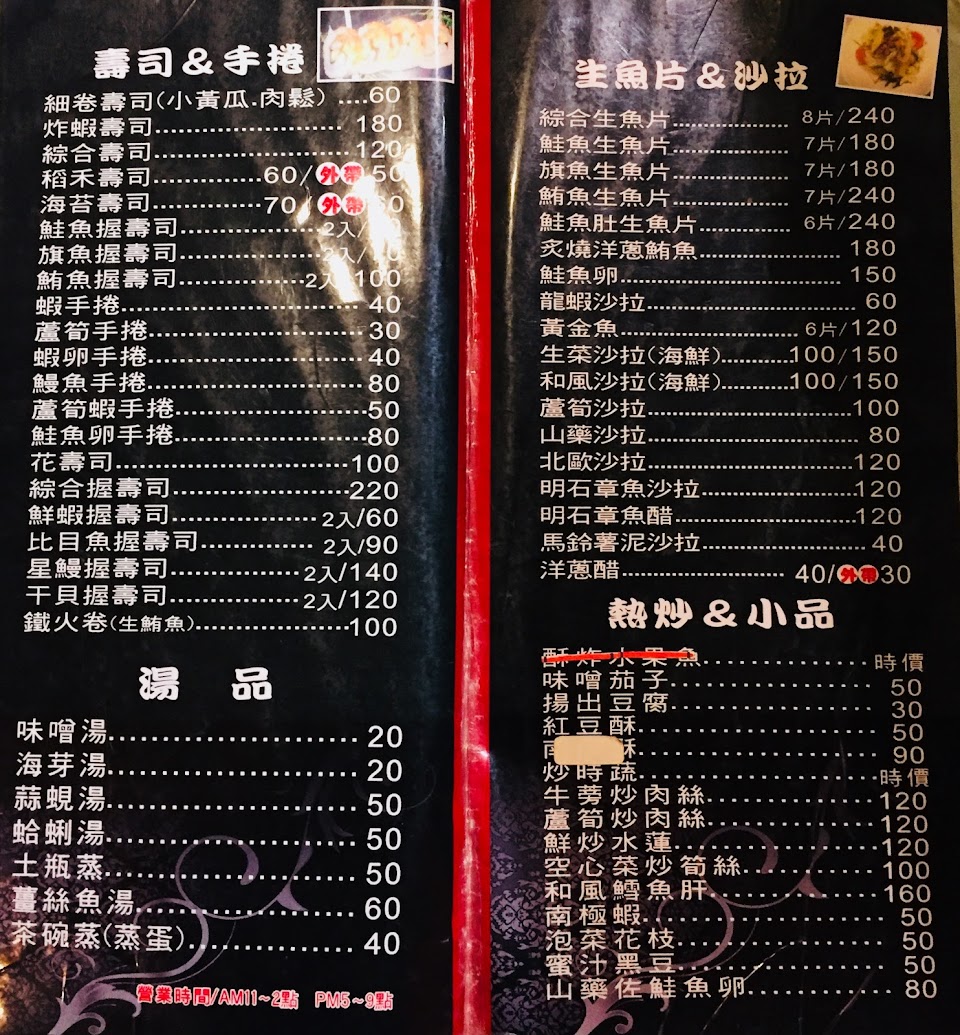 壽司&手捲
細卷壽司(小黃瓜.肉鬆) ....60
炸蝦壽司.................... 180
綜合壽司....................120
稻禾壽司..............60/外帶50
海苔壽司..............70/外帶60
鮭魚握壽司..................2入/
旗魚握壽司..................2入/
鮪魚握壽司..................2入/100
蝦手捲.......................... 40
蘆筍手捲....................... 30
蝦卵手捲....................... 40
鰻魚手捲....................... 80
蘆筍蝦手捲....................50
鮭魚卵手捲....................80
花壽司..........................100
綜合握壽司....................220
鮮蝦握壽司.................. 2入/60
比目魚握壽司.............. 2入/90
星鰻握壽司................2入/140
干貝握壽司................2入/120
鐵火卷(生鮪魚)....................100
湯 品
味噌湯......................... 20
海芽湯......................... 20
蒜蜆湯......................... 50
蛤蜊湯......................... 50
土瓶蒸......................... 50
薑絲魚湯...................... 60
茶碗蒸(蒸蛋)................ 40
營業時間/AM11~2點 PM5~9點
生魚片&沙拉
綜合生魚片.................. 8片/240
鮭魚生魚片.................. 7片/180
旗魚生魚片.................. 7片/180
鮪魚生魚片.................. 7片/240
鮭魚肚生魚片.............. 6片/240
炙燒洋蔥鮪魚.................. 180
鮭魚卵............................ 150
龍蝦沙拉.......................... 60
黃金魚........................ 6片/120
生菜沙拉(海鮮)..........100/150
和風沙拉(海鮮)..........100/150
蘆筍沙拉..........................100
山藥沙拉.......................... 80
北歐沙拉..........................120
明石章魚沙拉....................120
明石章魚醋.......................120
馬鈴薯泥沙拉.................... 40
洋蔥醋.................... 40/外帶30
熱炒&小品
酥炸水果魚.................... 時價
味噌茄子....................... 50
揚出豆腐....................... 30
紅豆酥.......................... 50
酥.......................... 90
炒時蔬.......................... 時價
牛蒡炒肉絲....................120
蘆筍炒肉絲....................120
鮮炒水蓮.......................120
空心菜炒筍絲.................100
和風鱈魚肝....................160
南極蝦.......................... 50
泡菜花枝....................... 50
蜜汁黑豆....................... 50
山藥佐鮭魚卵................. 80